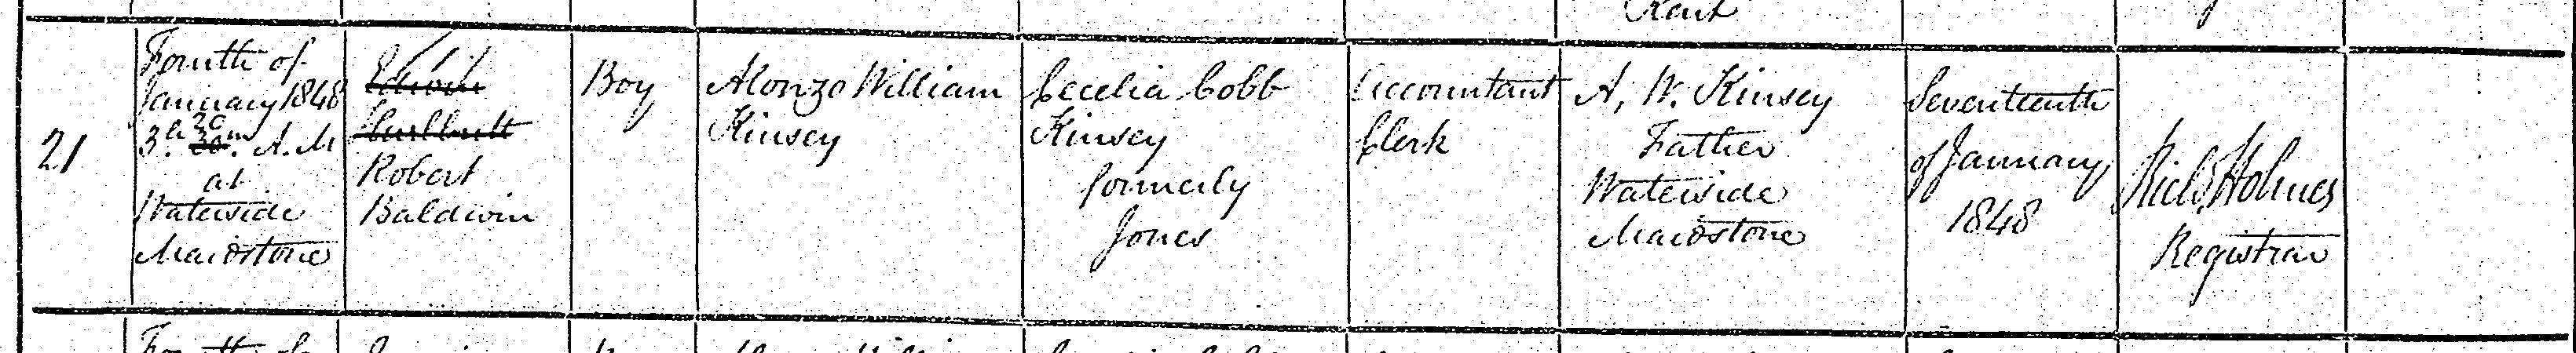 Kent
21
Fourth of
January 1848
3.h 20 30.m A.M
at
Waterside
Maidstone
Edwin
Hurlbutt
Robert
Baldwin
Boy
Alonzo William
Kinsey
Cecelia Cobb
Kinsey
formerly
Jones
Accountant
Clerk
A. W. Kinsey
Father
Waterside
Maidstone
Seventeenth
of January
1848
Richd Holmes
Registrar